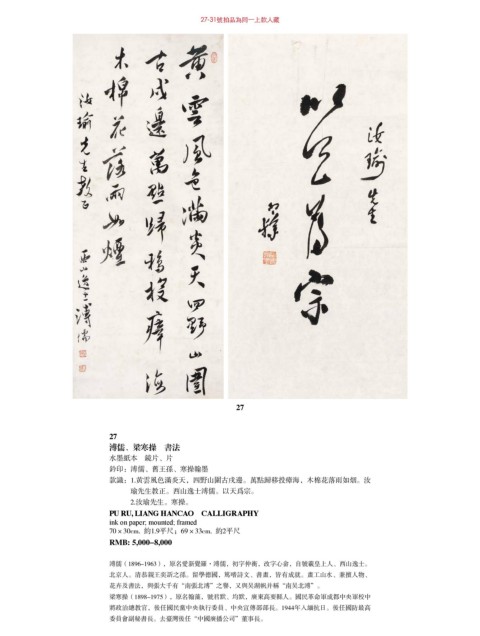 27-31號拍品為同一上款人藏
黃雲風色滿炎天四野山圍
古戍邊萬點歸鴉投瘴海
木棉花落雨如煙
汝瑜先生教正 西山逸士溥儒
汝瑜先生
以天為宗
寒操
27
27
溥儒、梁寒操 書法
水墨紙本 鏡片、片
鈐印：溥儒、舊王孫、寒操翰墨
款識：1.黃雲風色滿炎天，四野山圍古戍邊。萬點歸移投瘴海，木棉花落雨如烟。汝
瑜先生教正。西山逸士溥儒。以天為宗。
2.汝瑜先生。寒操。
PU RU, LIANG HANCAO CALLIGRAPHY
ink on paper; mounted; framed
70 × 30cm. 約1.9平尺；69 × 33cm. 約2平尺
RMB: 5,000–8,000
溥儒（1896–1963），原名愛新覺羅·溥儒，初字仲衡，改字心畬，自號羲皇上人、西山逸士，
北京人，清恭親王奕訢之孫。留學德國，篤嗜詩文、書畫，皆有成就。畫工山水、兼擅人物、
花卉及書法，與張大千有“南張北溥”之譽，又與吳湖帆并稱“南吳北溥”。
梁寒操（1898–1975），原名翰藻，號君猷、均猷，廣東高要縣人。國民革命軍成都中央軍校中
將政治總教官，後任國民黨中央執行委員、中央宣傳部部長。1944年入緬抗日。後任國防最高
委員會副秘書長。去臺灣後任“中國廣播公司”董事長。